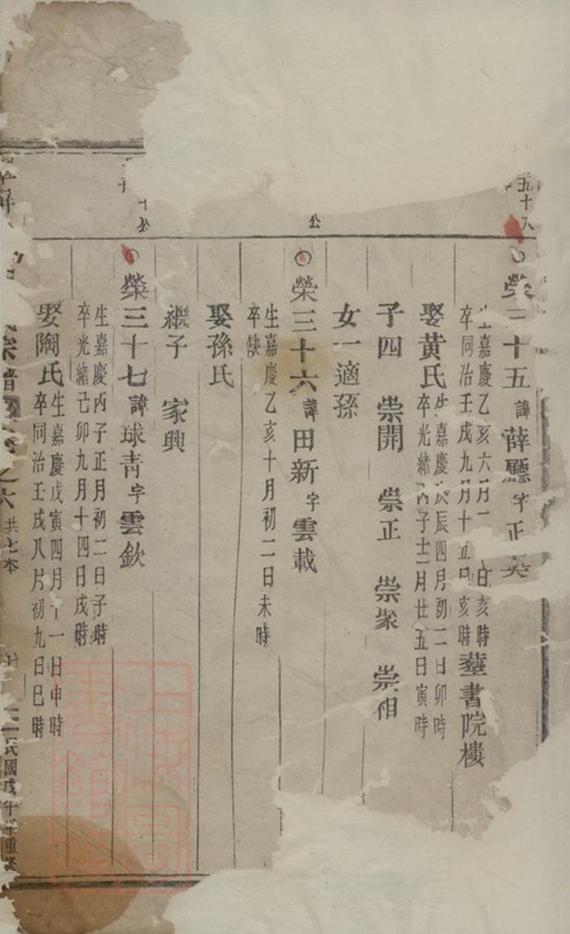 五十八
○榮三十五 諱 薛廳 字 正
生嘉慶乙亥六月一 日亥時
卒同治壬戌九月十五日亥時 葬書院樓
娶黃氏
生嘉慶戊辰四月初二日卯時
卒光緒丙子十二月廿五日寅時
子四 崇開 崇正 崇眾 崇相
女一適孫
公
○榮三十六 諱 田新 字 雲載
生嘉慶乙亥十月初二日未時
卒缺
娶孫氏
繼子 家興
○榮三十七 諱 球青 字 雲欽
生嘉慶丙子正月初二日子時
卒光緒己卯九月十四日戌時
娶陶氏
生嘉慶戊寅四月十一日申時
卒同治壬戌八月初九日巳時
宗譜 卷之六 共七本
民國戊午年重修